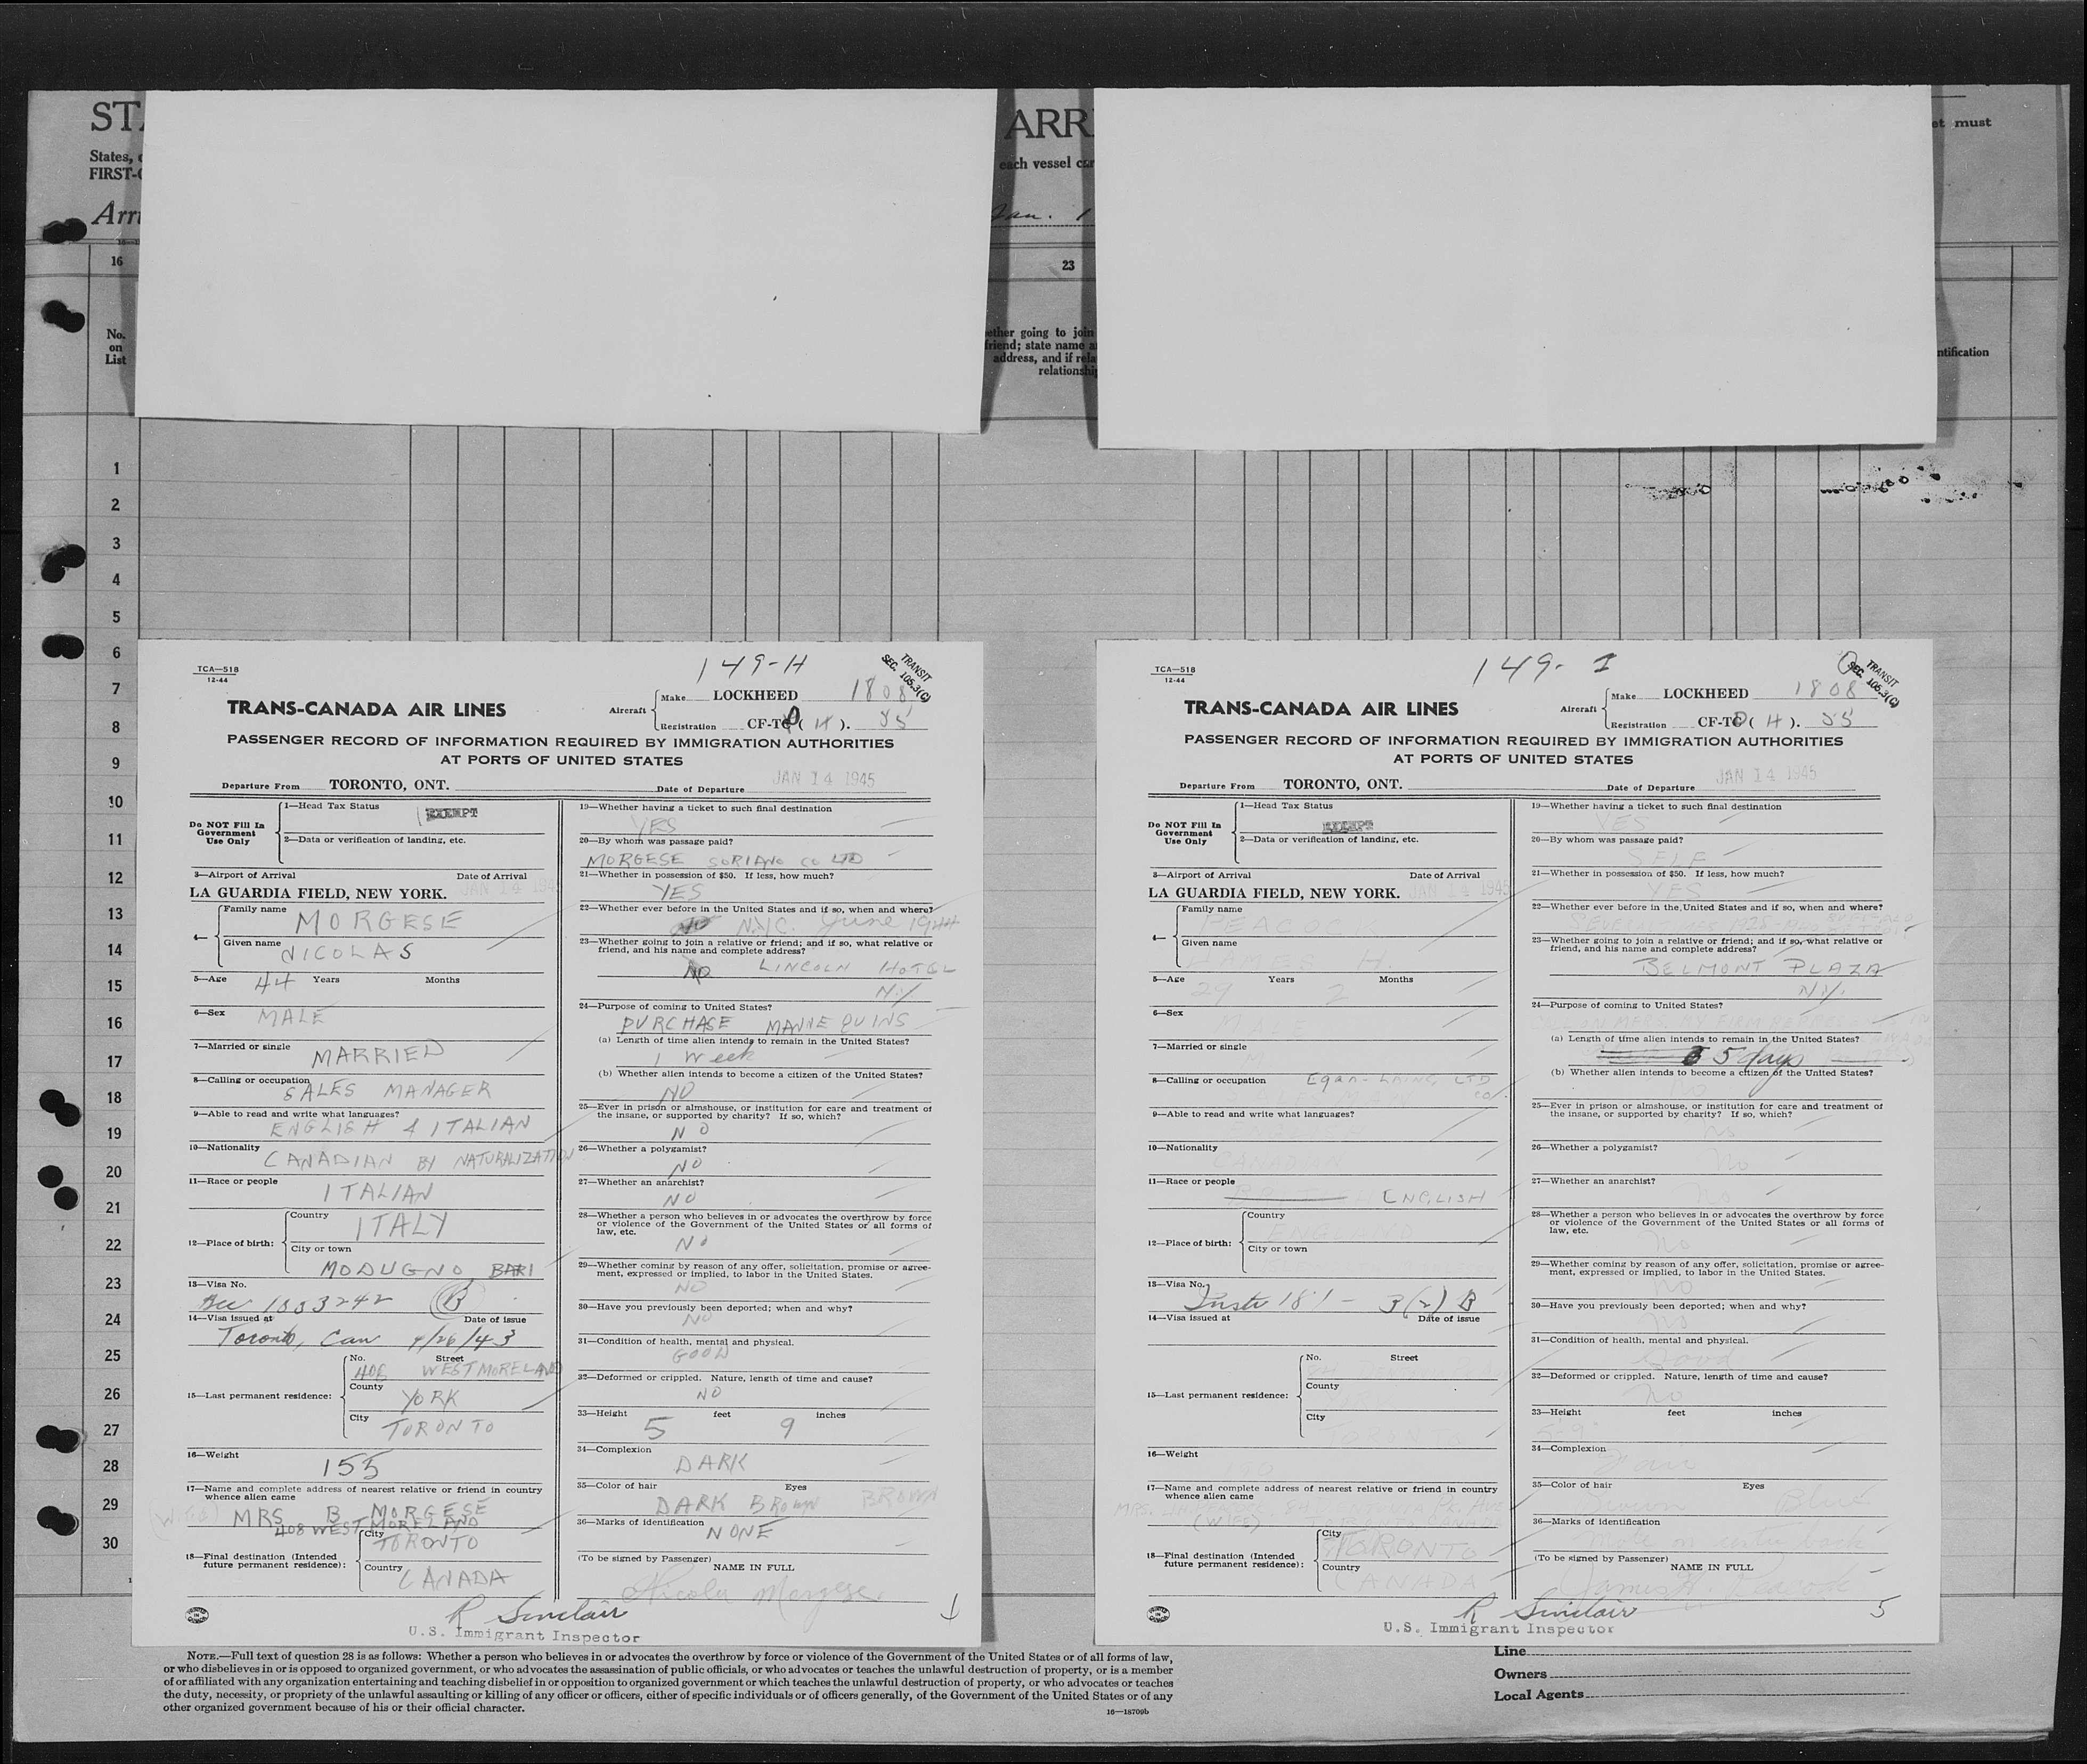 States,
FIRST-
Arri
16
No.
on
List
ARR
each vessel
Jan. 1
23
ether going to join
friend; state name
address, and if
relationship
et must
ntification
1
2
3
4
5
6
7
8
9
10
11
12
13
14
15
16
17
18
19
20
21
22
23
24
25
26
27
28
29
30
149-H
TRANSIT
SEC. 105.3(C)
TCA—518
12-44
TRANS-CANADA AIR LINES
Aircraft
Make LOCKHEED 1808
Registration CF-TC (H). 55
PASSENGER RECORD OF INFORMATION REQUIRED BY IMMIGRATION AUTHORITIES
AT PORTS OF UNITED STATES
Departure From TORONTO, ONT. Date of Departure JAN 14 1945
Do NOT Fill In
Government
Use Only
1—Head Tax Status EXEMPT
2—Data or verification of landing, etc.
3—Airport of Arrival Date of Arrival
LA GUARDIA FIELD, NEW YORK. JAN 14 194
4— Family name MORGESE
Given name NICOLAS
5—Age 44 Years Months
6—Sex MALE
7—Married or single MARRIED
8—Calling or occupation SALES MANAGER
9—Able to read and write what languages?
ENGLISH & ITALIAN
10—Nationality CANADIAN BY NATURALIZATION
11—Race or people ITALIAN
12—Place of birth: Country ITALY
City or town
MODUGNO BARI
13—Visa No.
1333242 B
14—Visa issued at Date of issue
Toronto, Can 4/26/43
15—Last permanent residence:
No. Street
408 WESTMORELAND
County YORK
City TORONTO
16—Weight 155
17—Name and complete address of nearest relative or friend in country
whence alien came
(WIFE) MRS B MORGESE
408 WESTMORELAND
18—Final destination (Intended
future permanent residence):
City TORONTO
Country CANADA
19—Whether having a ticket to such final destination
YES
20—By whom was passage paid?
MORGESE SORIANO CO LTD
21—Whether in possession of $50. If less, how much?
YES
22—Whether ever before in the United States and if so, when and where?
NO NYC. June 1944
23—Whether going to join a relative or friend; and if so, what relative or
friend, and his name and complete address?
NO LINCOLN HOTEL
NY
24—Purpose of coming to United States?
PURCHASE MANNEQUINS
(a) Length of time alien intends to remain in the United States?
1 Week
(b) Whether alien intends to become a citizen of the United States?
NO
25—Ever in prison or almshouse, or institution for care and treatment of
the insane, or supported by charity? If so, which?
NO
26—Whether a polygamist?
NO
27—Whether an anarchist?
NO
28—Whether a person who believes in or advocates the overthrow by force
or violence of the Government of the United States or all forms of
law, etc.
NO
29—Whether coming by reason of any offer, solicitation, promise or agree-
ment, expressed or implied, to labor in the United States.
NO
30—Have you previously been deported; when and why?
NO
31—Condition of health, mental and physical.
GOOD
32—Deformed or crippled. Nature, length of time and cause?
NO
33—Height 5 feet 9 inches
34—Complexion
DARK
35—Color of hair Eyes
DARK BROWN BROWN
36—Marks of identification
NONE
(To be signed by Passenger) NAME IN FULL
Nicola Morgese
R Sinclair
U.S. Immigrant Inspector
149- I
TRANSIT
SEC. 105.3(C)
TCA—518
12-44
TRANS-CANADA AIR LINES
Aircraft
Make LOCKHEED 1808
Registration CF-TC (H). 55
PASSENGER RECORD OF INFORMATION REQUIRED BY IMMIGRATION AUTHORITIES
AT PORTS OF UNITED STATES
Departure From TORONTO, ONT. Date of Departure JAN 14 1945
Do NOT Fill In
Government
Use Only
1—Head Tax Status
EXEMPT
2—Data or verification of landing, etc.
3—Airport of Arrival Date of Arrival
LA GUARDIA FIELD, NEW YORK. JAN 14 1945
4— Family name
Given name
JAMES H
5—Age 29 Years 2 Months
6—Sex
MALE
7—Married or single
8—Calling or occupation Egan-Laing LTD
9—Able to read and write what languages?
10—Nationality CANADIAN
11—Race or people ENGLISH
12—Place of birth: Country
ENGLAND
City or town
13—Visa No.
Instr 181 - 3(2) B
14—Visa issued at Date of issue
15—Last permanent residence:
No. Street
County
City
TORONTO
16—Weight
17—Name and complete address of nearest relative or friend in country
whence alien came
MRS.
(WIFE)
18—Final destination (Intended
future permanent residence):
City TORONTO
Country CANADA
19—Whether having a ticket to such final destination
YES
20—By whom was passage paid?
SELF
21—Whether in possession of $50. If less, how much?
YES
22—Whether ever before in the United States and if so, when and where?
23—Whether going to join a relative or friend; and if so, what relative or
friend, and his name and complete address?
BELMONT PLAZA
NY.
24—Purpose of coming to United States?
(a) Length of time alien intends to remain in the United States?
5 days
(b) Whether alien intends to become a citizen of the United States?
25—Ever in prison or almshouse, or institution for care and treatment of
the insane, or supported by charity? If so, which?
No
26—Whether a polygamist?
No
27—Whether an anarchist?
No
28—Whether a person who believes in or advocates the overthrow by force
or violence of the Government of the United States or all forms of
law, etc.
No
29—Whether coming by reason of any offer, solicitation, promise or agree-
ment, expressed or implied, to labor in the United States.
No
30—Have you previously been deported; when and why?
No
31—Condition of health, mental and physical.
Good
32—Deformed or crippled. Nature, length of time and cause?
No
33—Height feet inches
34—Complexion
Fair
35—Color of hair Eyes
Brown Blue
36—Marks of identification
(To be signed by Passenger) NAME IN FULL
James H. Peacock
R Sinclair 5
U.S. Immigrant Inspector
NOTE.—Full text of question 28 is as follows: Whether a person who believes in or advocates the overthrow by force or violence of the Government of the United States or of all forms of law,
or who disbelieves in or is opposed to organized government, or who advocates the assassination of public officials, or who advocates or teaches the unlawful destruction of property, or is a member
of or affiliated with any organization entertaining and teaching disbelief in or opposition to organized government or which teaches the unlawful destruction of property, or who advocates or teaches
the duty, necessity, or propriety of the unlawful assaulting or killing of any officer or officers, either of specific individuals or of officers generally, of the Government of the United States or of any
other organized government because of his or their official character.
16—18709b
Line
Owners
Local Agents